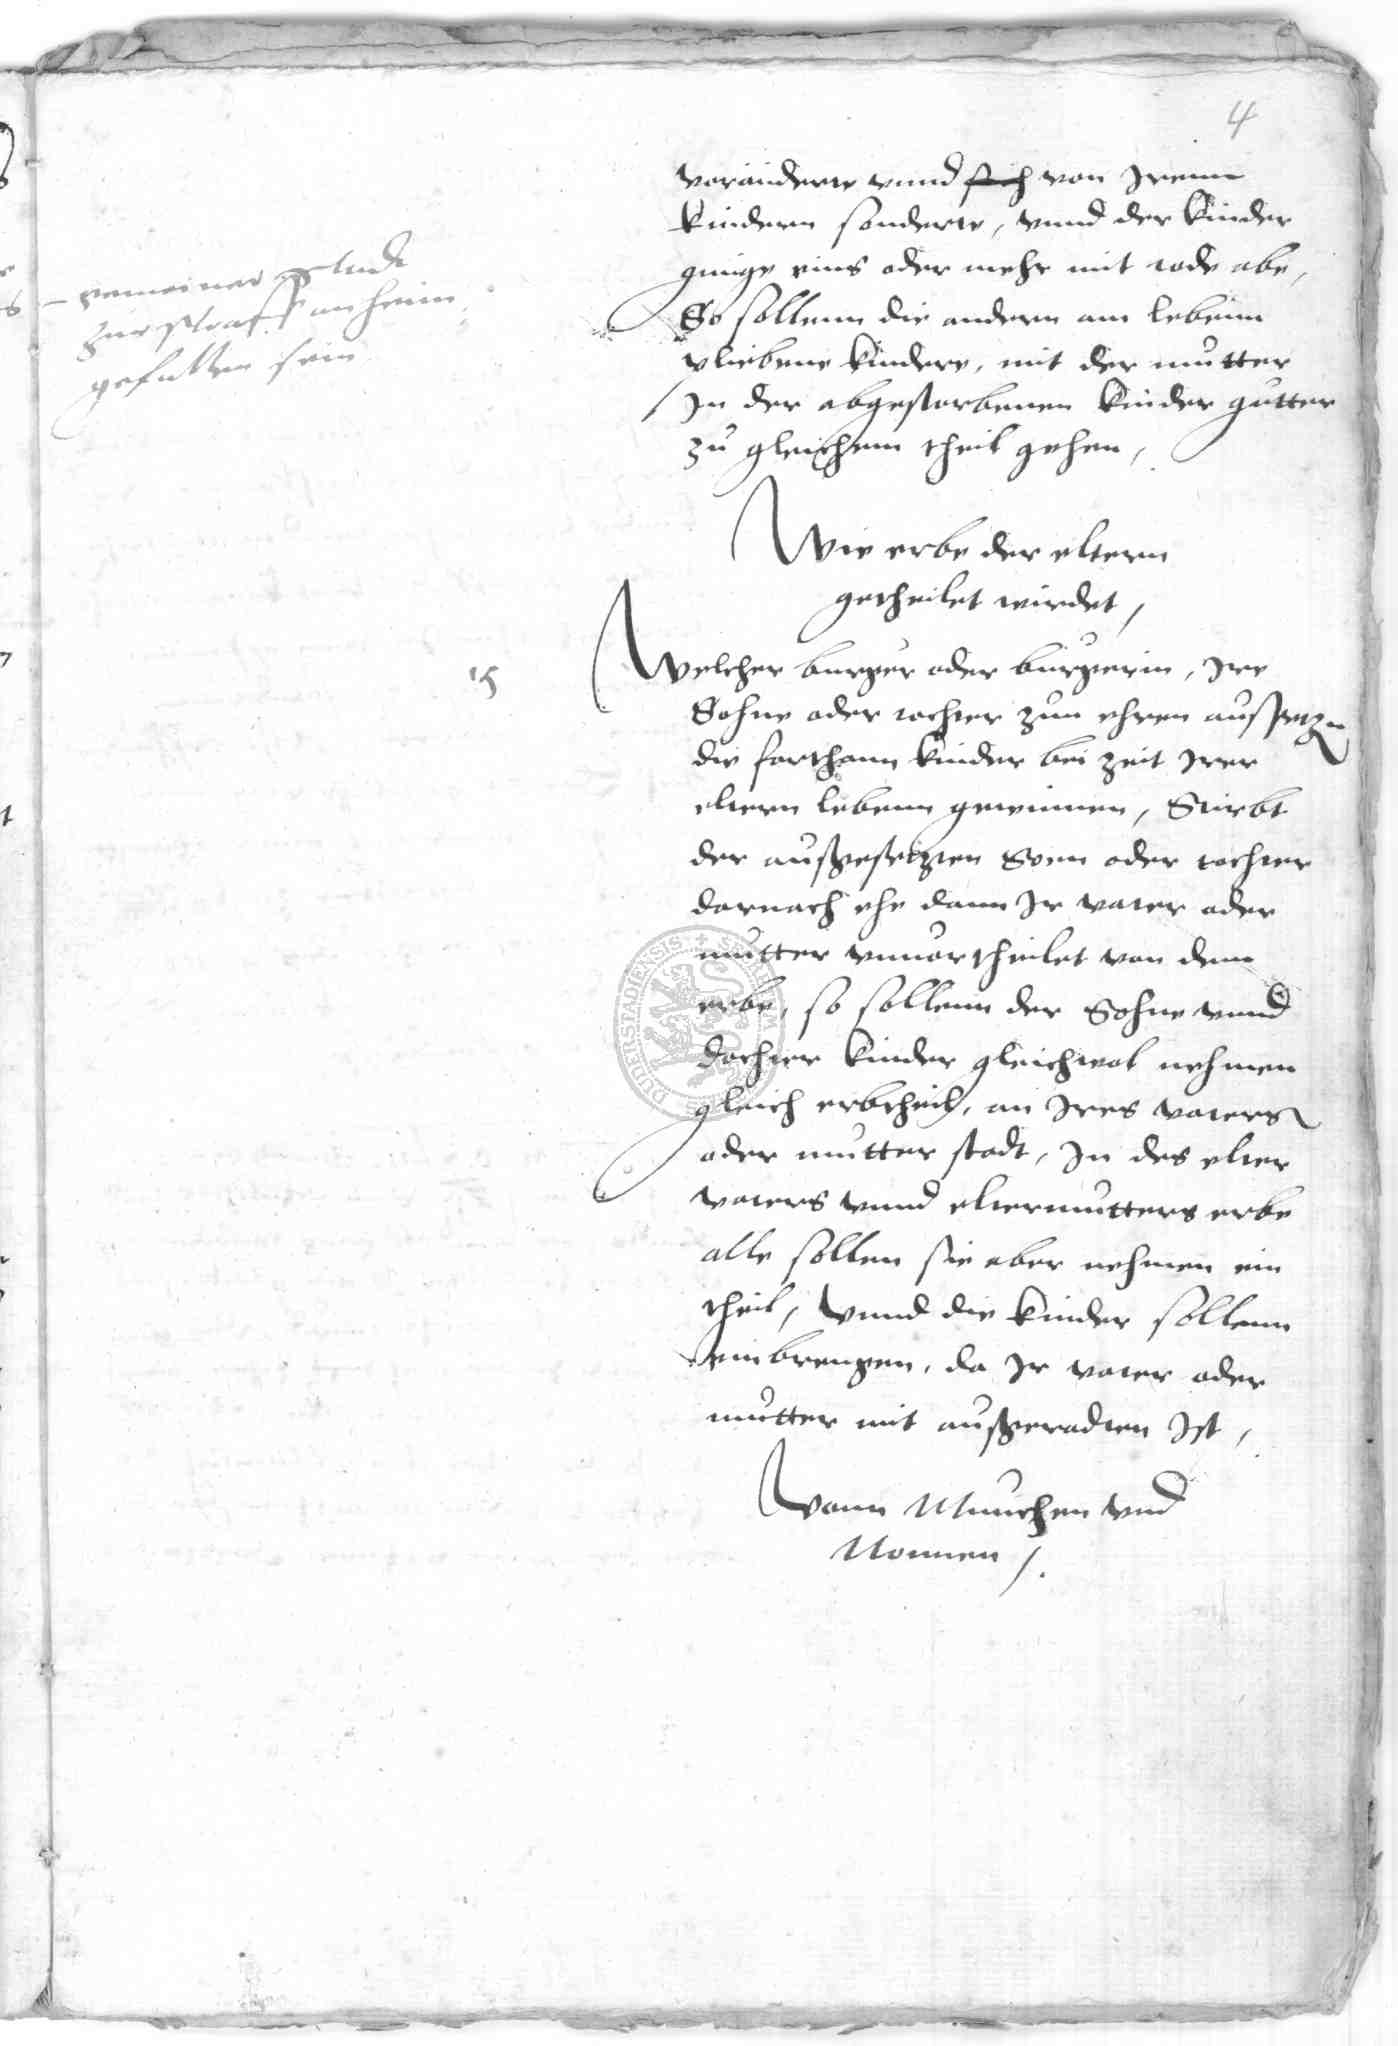 4
voranderte vnnd sich von Irenn
kindern sonderte, vnnd der kinder
ginge eins oder mehr mit tode abe,
So sollenn die andern am lebenn
pliebene kindere, mit der mutter
In der abgestorbenen kinder gutter
zu gleichem theil gehen,
gemeiner Stadt
zur straff anheim
gefallen sein
Wie erbe der eltern
getheilet wirdet,
15
Welcher burger oder burgerin, Ire
Sohne oder tochter zun ehren aussetzen
die forthann kinder bei zeit Irer
eltern lebenn gewinnen, Stirbt
der außgesetzten Sonn oder tochter
darnach ehe dann Ir vater oder
mutter vnuortheilet von dem
erbe, so sollenn der Sohne vnnd
dochter kinder gleichwol nehmen
gleich erbtheil, an Ires vaters
oder mutter stadt, In des elter
vaters vnnd eltermutters erbe
alle sollen sie aber nehmen ein
theil, vnnd die kinder sollenn
einbrengen, da Ir vater oder
mutter mit außgeradten Ist,
Vonn Munchen vnd
Nonnen /.